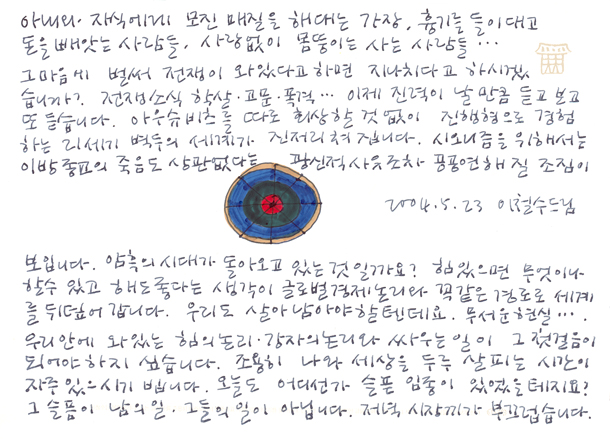 아내와 자식에게 모진 매질을 해대는 가장, 흉기를 들이대고
돈을 빼앗는 사람들, 사랑없이 몸뚱이는 사는 사람들…
그마음에 벌써 전쟁이 와있다고하면 지나치다고 하시겠
습니까? 전쟁소식 학살·고문·폭격… 이제 진력이 날 만큼 듣고 보고
또 듣습니다. 아우슈비츠를 따로 회상할 것 없이 진행형으로 경험
하는 21세기 벽두의 세계가 진저리쳐집니다. 시오니즘을 위해서는
이방종교의 죽음도 상관없다는 광신적사유조차 풍풍연해질 조짐이
2004.5.23 이철수드림
보입니다. 암흑의시대가 돌아오고 있는것일까요? 힘있으면 무엇이나
할수 있고 해도좋다는 생각이 글로벌경제논리와 꼭같은 경로로 세계
를 뒤덮어갑니다. 우리도 살아남아야할텐데요. 무서운현실….
우리안에 와있는 힘의논리·강자의논리와 싸우는일이 그 첫걸음이
되어야하지 싶습니다. 조용히 나와 세상을 두루 살피는 시간이
자주있으시기 빕니다. 오늘도 어디선가 슬픈 임종이 있었을테지요?
그 슬픔이 남의일·그들의일이 아닙니다. 저녁 시장끼가 부끄럽습니다.